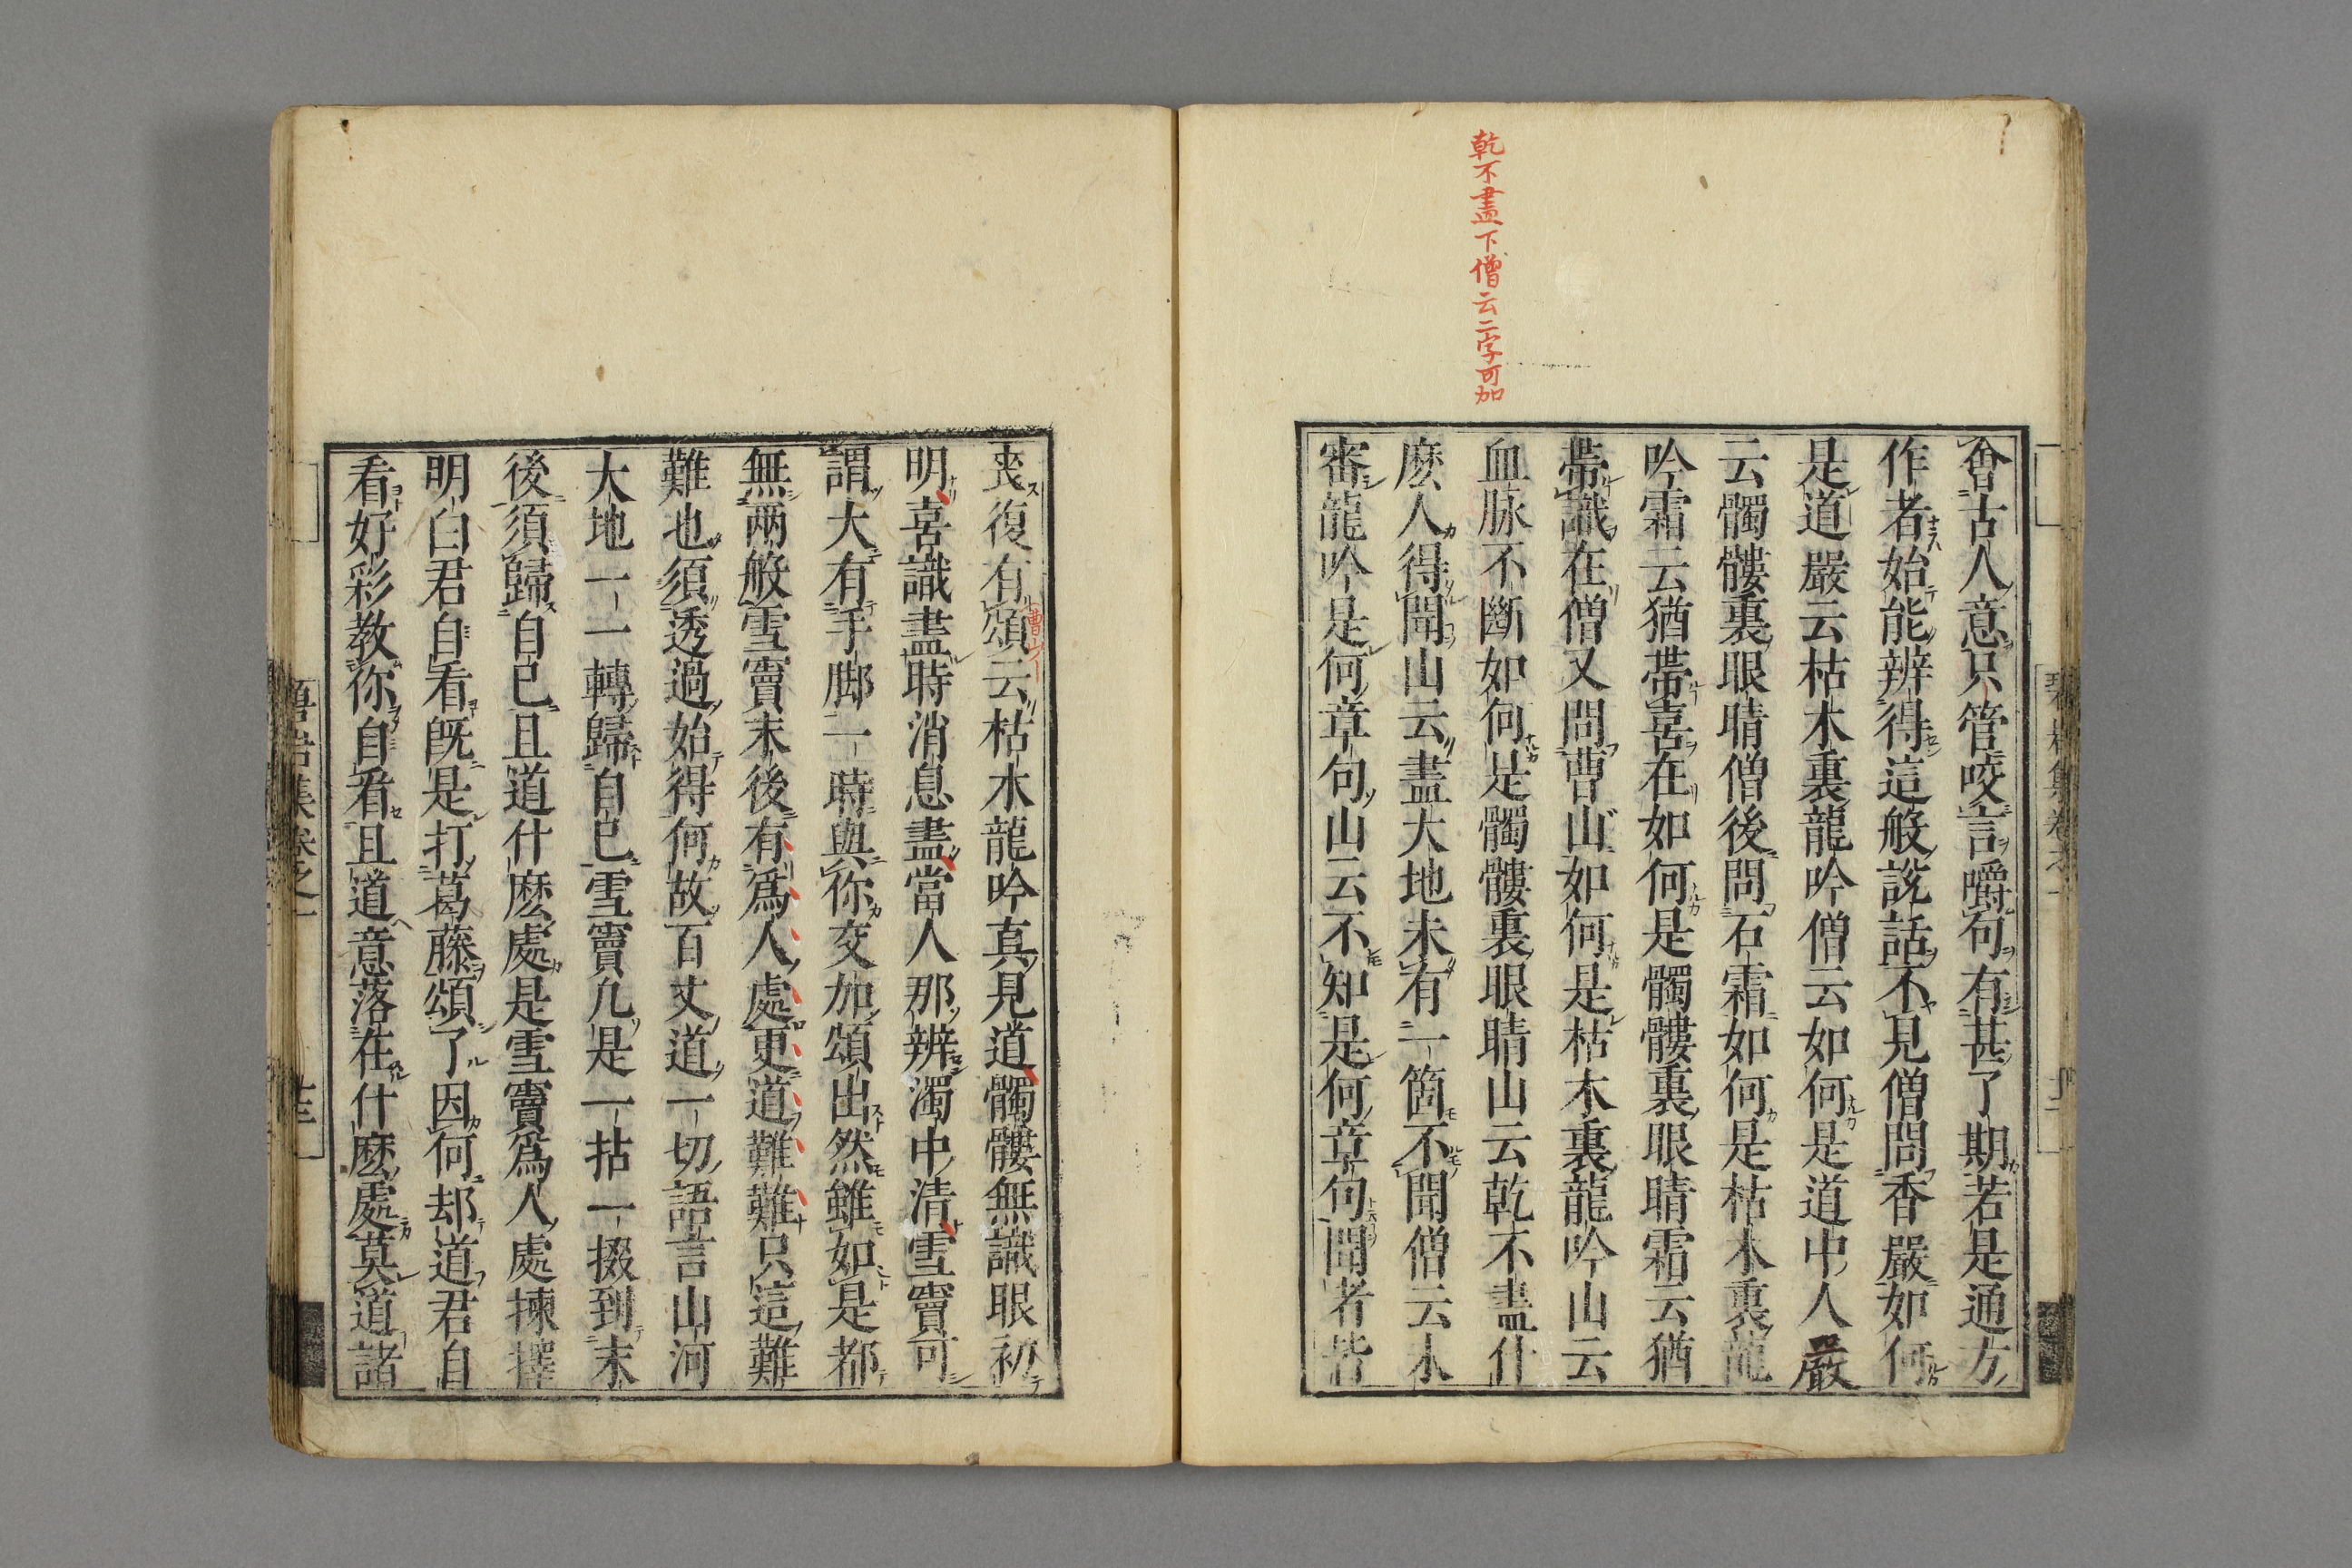 乾不盡下僧云二字可加
會古人意只管咬言嚼句有甚了期若是通方
作者始能辨得這般說話不見僧問香嚴如何
是道嚴云枯木裏龍吟僧云如何是道中人嚴
云髑髏裏眼睛僧後問石霜如何是枯木裏龍
吟霜云猶帶喜在如何是髑髏裏眼睛霜云猶
帶識在僧又問曹山如何是枯木裏龍吟山云
血脉不斷如何是髑髏裏眼睛山云乾不盡什
麽人得聞山云盡大地未有一箇不聞僧云未
審龍吟是何章句山云不知是何章句聞者皆
喪復有頌云枯木龍吟真見道髑髏無識眼初
明喜識盡時消息盡當人那辨濁中清雪竇可
謂大有手脚一時與你交加頌出然雖如是都
無兩般雪竇末後有爲人處更道難難只這難
難也須透過始得何故百丈道一切語言山河
大地一一轉歸自己雪竇凡是一拈一掇到末
後須歸自己且道什麽處是雪竇爲人處揀擇
明白君自看旣是打葛藤頌了因何却道君自
看好彩教你自看且道意落在什麽處莫道諸
碧岩集卷之一
十三